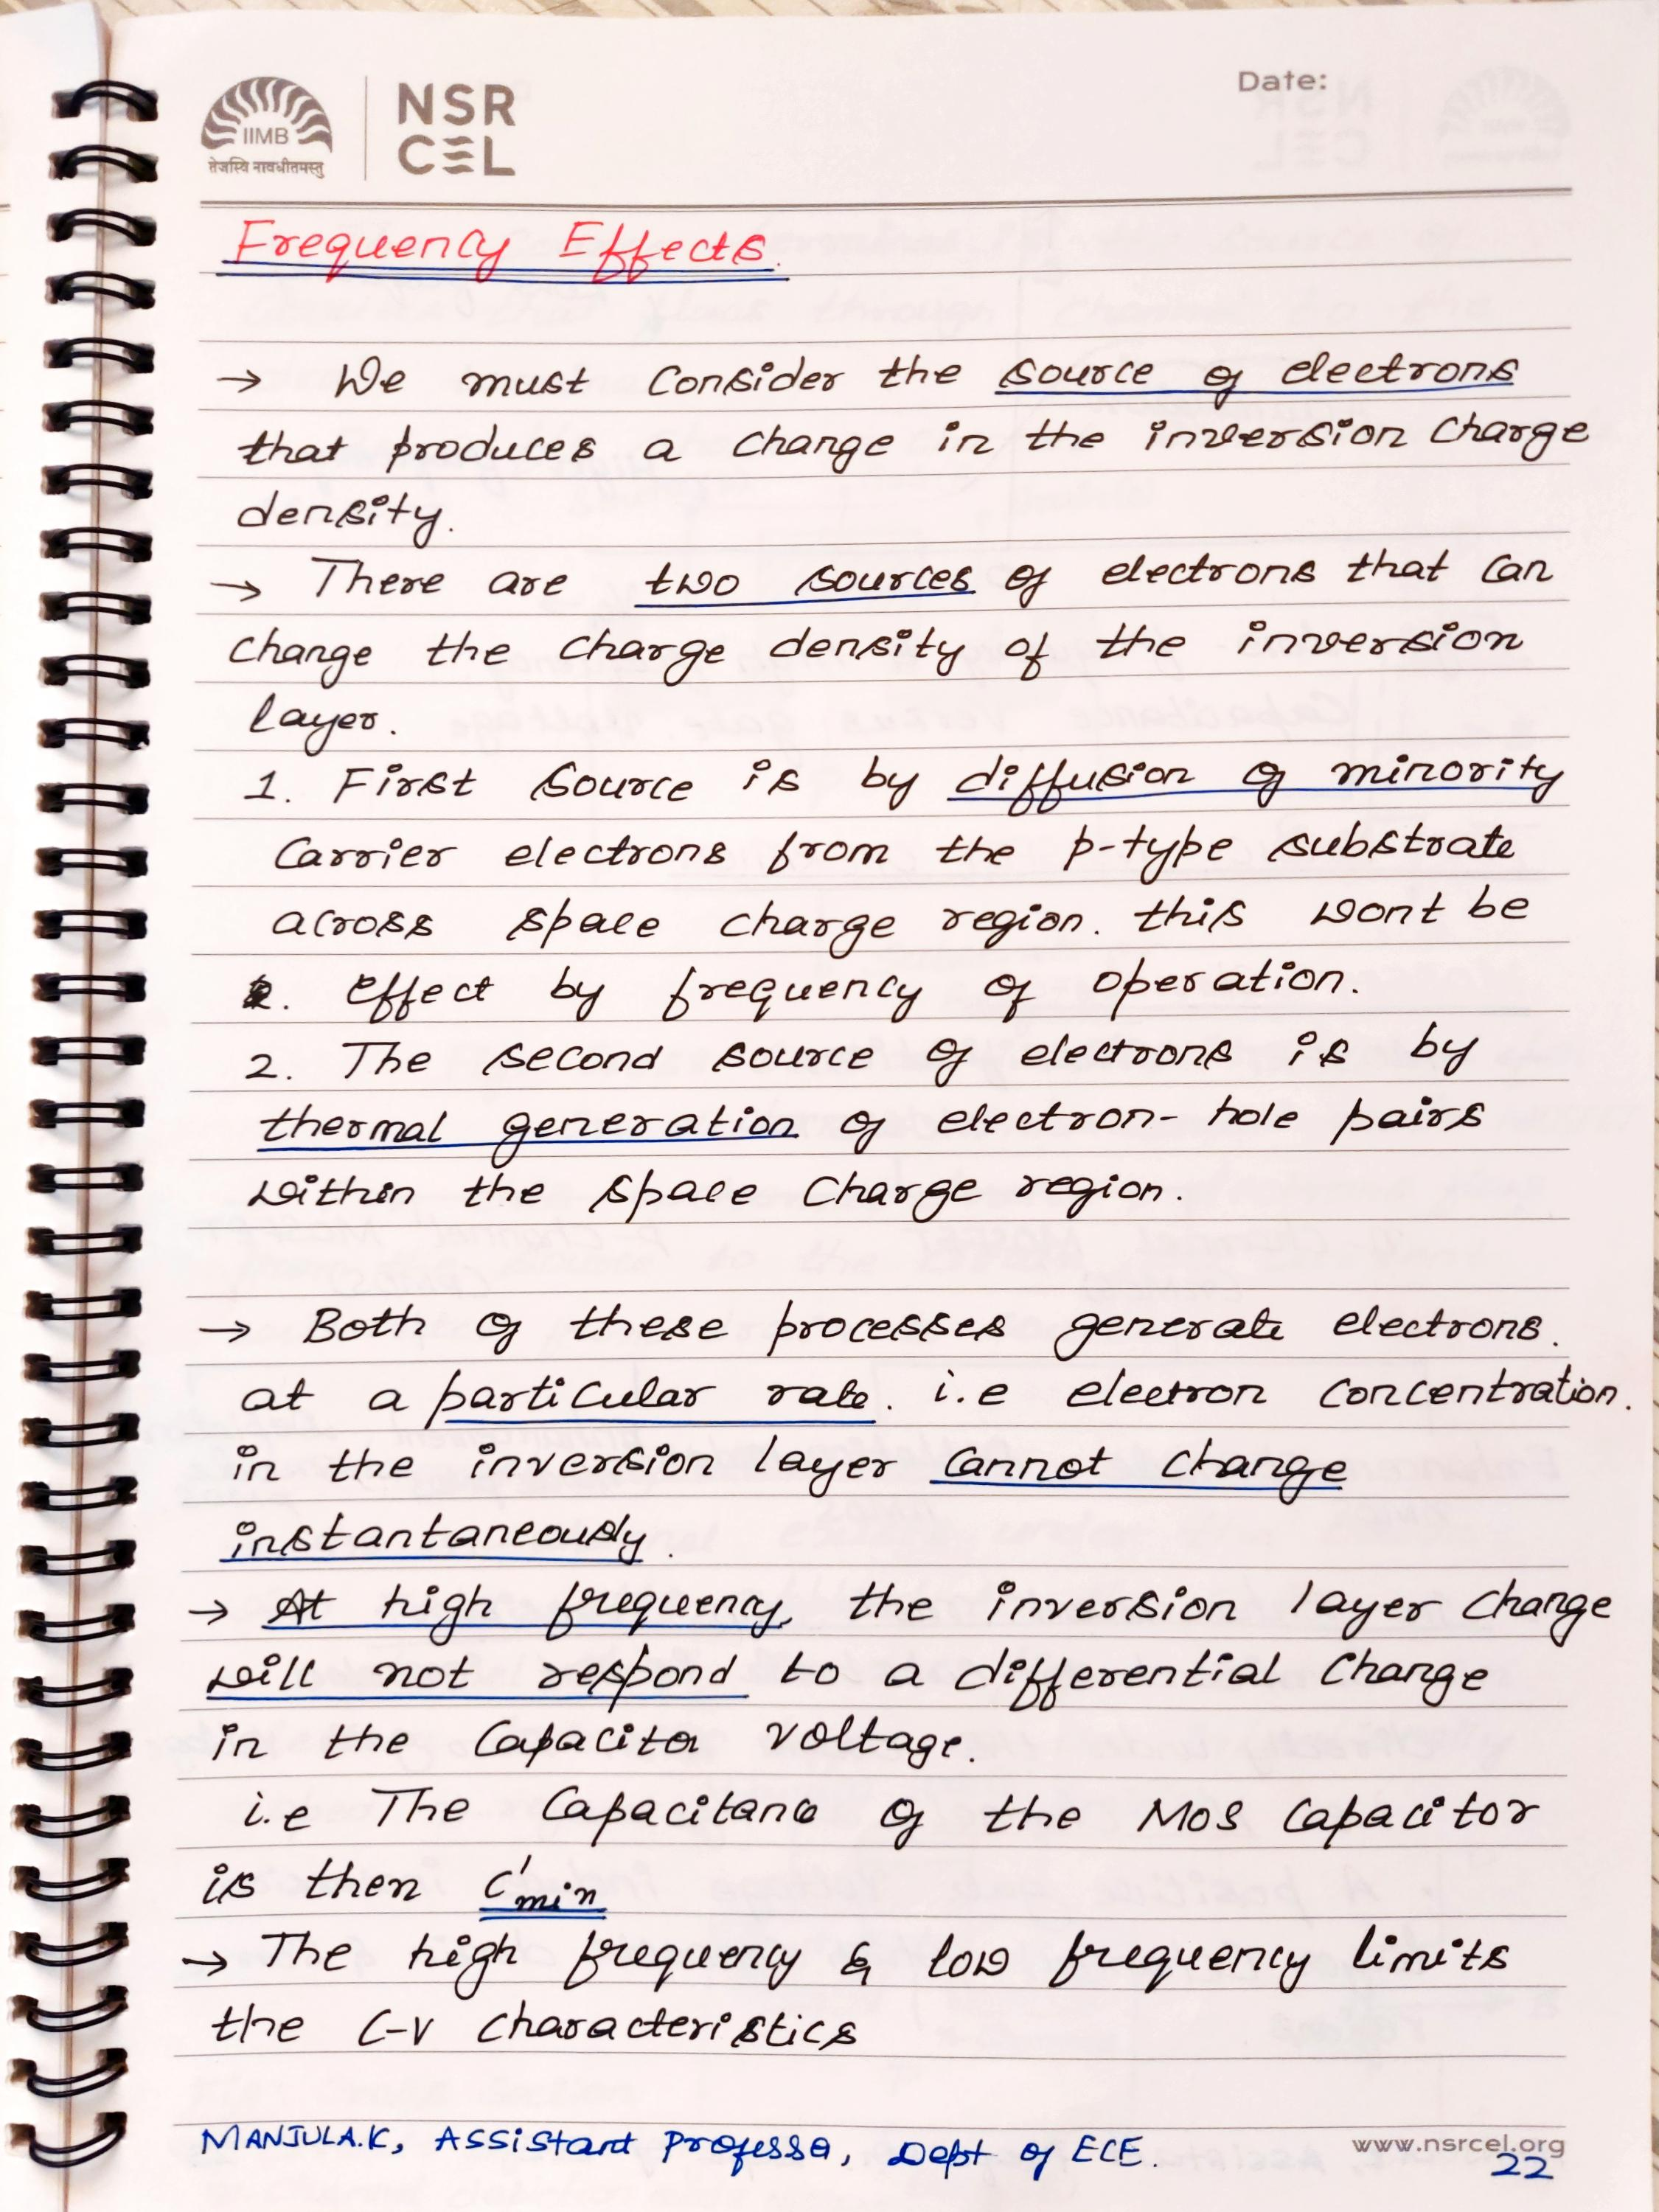 Date:
IIMB
तेजस्वि नावधीतमस्तु
NSR
CEL
Frequency Effects.
→ We must Consider the source of electrons
that produces a change in the inversion Charge
density.
→ There are two sources of electrons that can
change the charge density of the inversion
layer.
1. First source is by diffusion of minority
Carrier electrons from the p-type substrate
across space charge region. this wont be
2. effect by frequency of operation.
2. The second source of electrons is by
thermal generation of electron-hole pairs
within the space Charge region.
→ Both of these processes generate electrons.
at a particular rate. i.e electron concentration.
in the inversion layer cannot change
instantaneously.
→ At high frequency, the inversion layer change
will not respond to a differential Change
in the Capacitor voltage.
i.e The Capacitance of the MOS Capacitor
is then C'min
→ The high frequency & low frequency limits
the C-V characteristics
MANJULA.K, Assistant Professor, Dept of ECE.
www.nsrcel.org
22